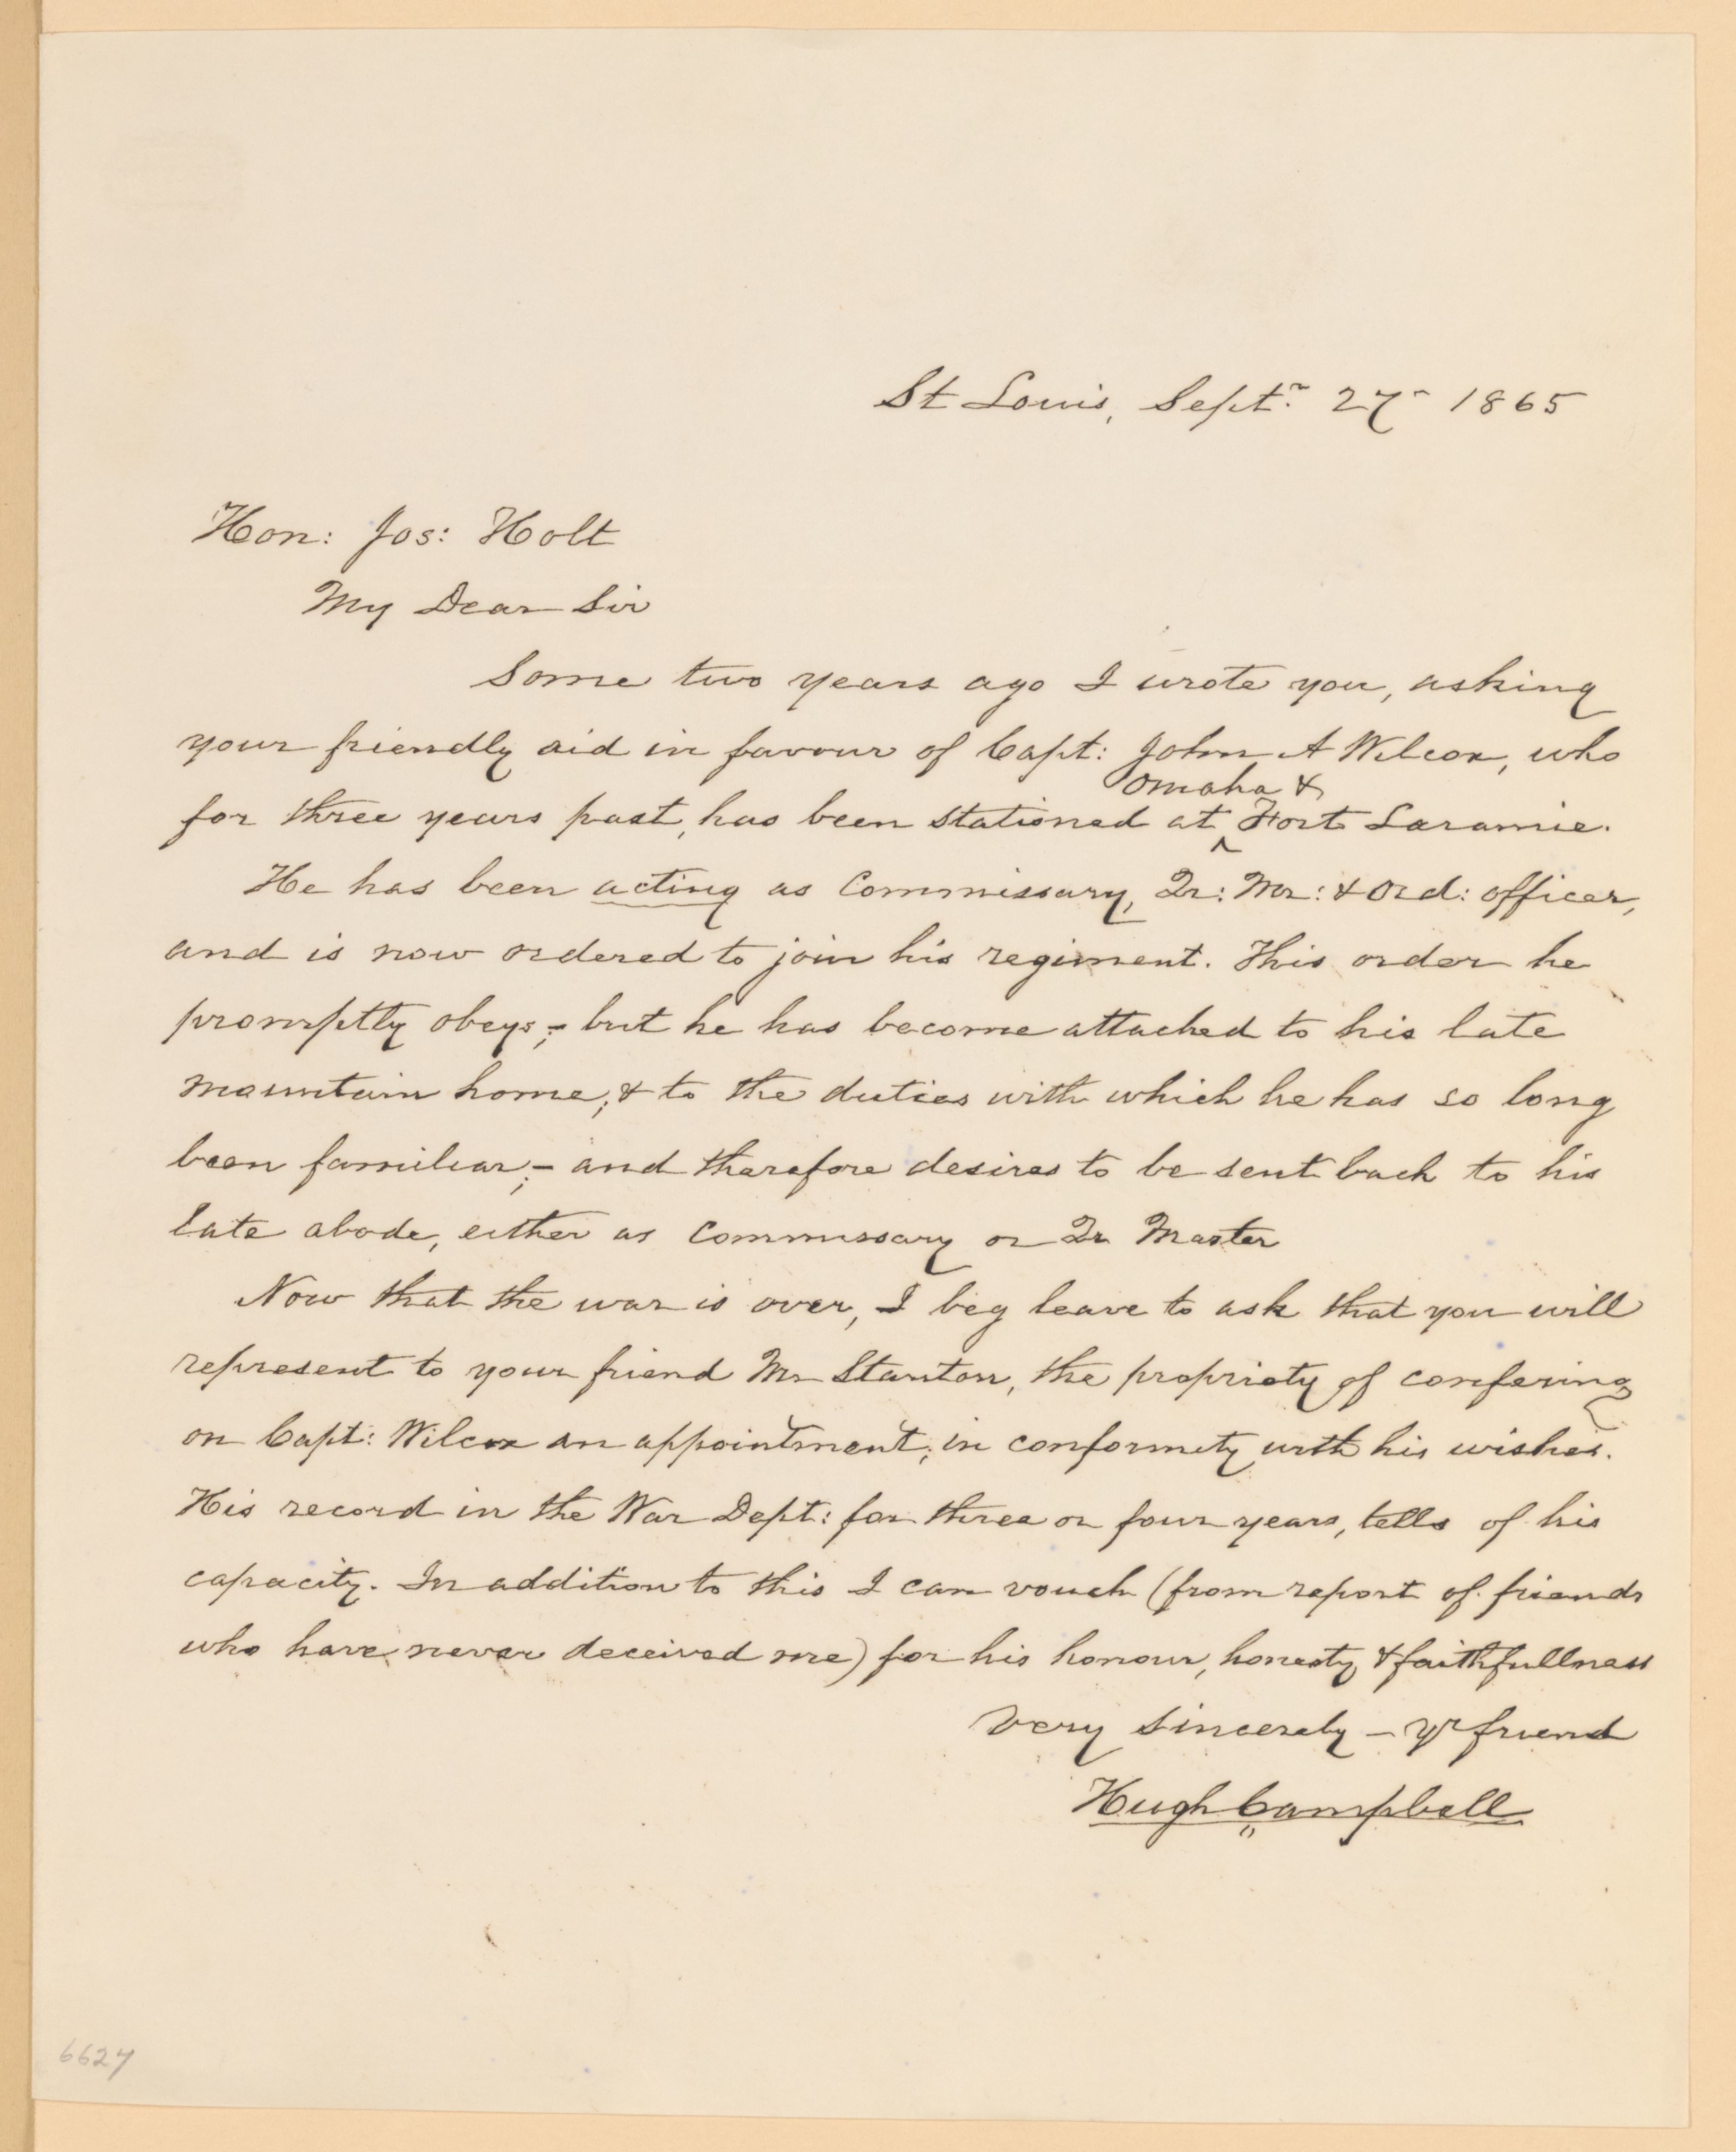 St Louis, Septr. 27 - 1865
Hon: Jos: Holt
My Dear Sir
Some two years ago I wrote you, asking
your friendly aid in favour of Capt: John A Wilcox, who
Omaha &
for three years past, has been stationed at ^ Fort Laramie.
He has been acting as Commissary, Qr: Mr: & Ord: officer,
and is now ordered to join his regiment. This order he
promptly obeys;- but he has become attached to his late
mountain home, & to the duties with which he has so long
been familiar;- and therefore desires to be sent back to his
late abode, either as Commissary or Qr Master
Now that the war is over, I beg leave to ask that you will
represent to your friend Mr Stanton, the propriety of confering
on Capt: Wilcox an appointment, in conformity with his wishes.
His record in the War Dept: for three or four years, tells of his
capacity. In addition to this I can vouch (from report of friends
who have never deceived me) for his honour, honesty & faithfullness
Very sincerely - Yr friend
Hugh Campbell
6627